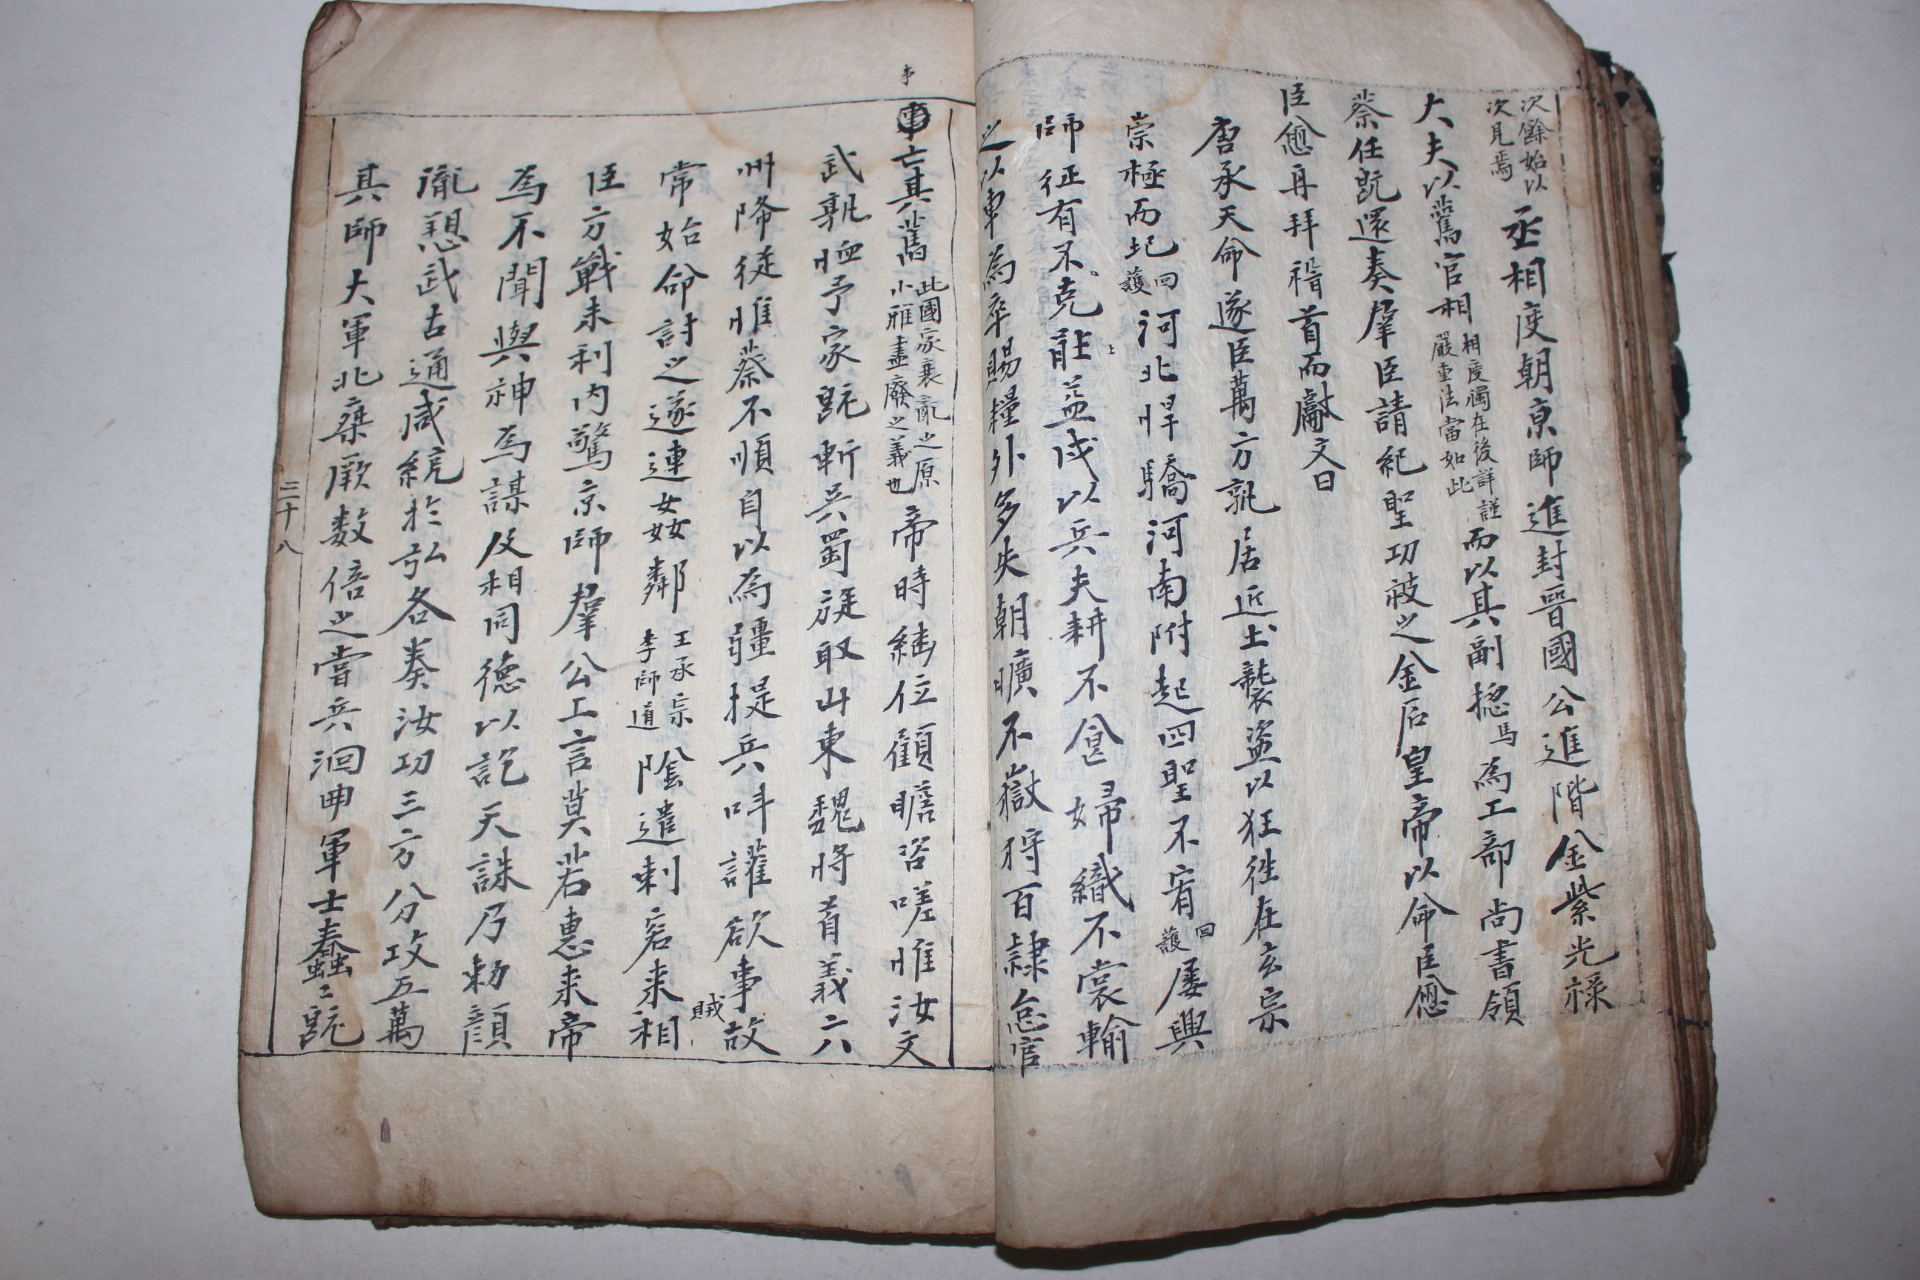 次餘始以
次見焉
丞相度朝京師進封晉國公進階金紫光祿
大夫以舊官相
相度獨在後詳謹
嚴重法當如此
而以其副摠馬為工部尚書領
蔡任旣還奏羣臣請紀聖功被之金石皇帝以命臣愈
臣愈再拜稽首而獻文曰
唐承天命遂臣萬方孰居近土襲盜以狂徃在玄宗
崇極而圮
回
護
河北悍驕河南附起四聖不宥
回
護
屢興
師征有不克能益戍以兵夫耕不食婦織不裳輸
之以車為卒賜糧外多失朝曠不嶽狩百隷怠官
事
亡其舊
此國家衰亂之原
小雅盡廢之義也
帝時継位顧瞻咨嗟惟汝文
武孰恤予家旣斬吳蜀旋取山東魏將首義六
州降從惟蔡不順自以為疆提兵呌讙欲事故
常始命討之遂連姦鄰
王承宗
李師道
陰遣刺客来相
賊
臣方戰未利內驚京師羣公上言莫若惠来帝
為不聞與神為謀及相同德以訖天誅乃勅顔
胤愬武古通咸統於弘各奏汝功三方分攻五萬
其師大軍北乗厥数倍之嘗兵洄曲軍士蠢〻旣
三十八